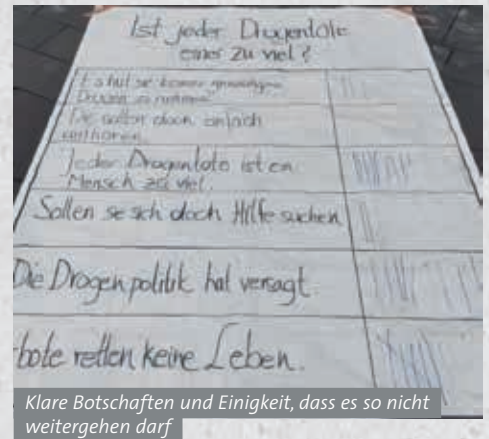 Ist jeder Drogentote
einer zu viel?
Es hat sie keiner gezwungen
Drogen zu nehmen
Die sollen doch einfach
aufhören
Jeder Drogentote ist ein
Mensch zu viel.
Sollen se sich doch Hilfe suchen
Die Drogenpolitik hat versagt.
bote retten keine Leben.
Klare Botschaften und Einigkeit, dass es so nicht
weitergehen darf